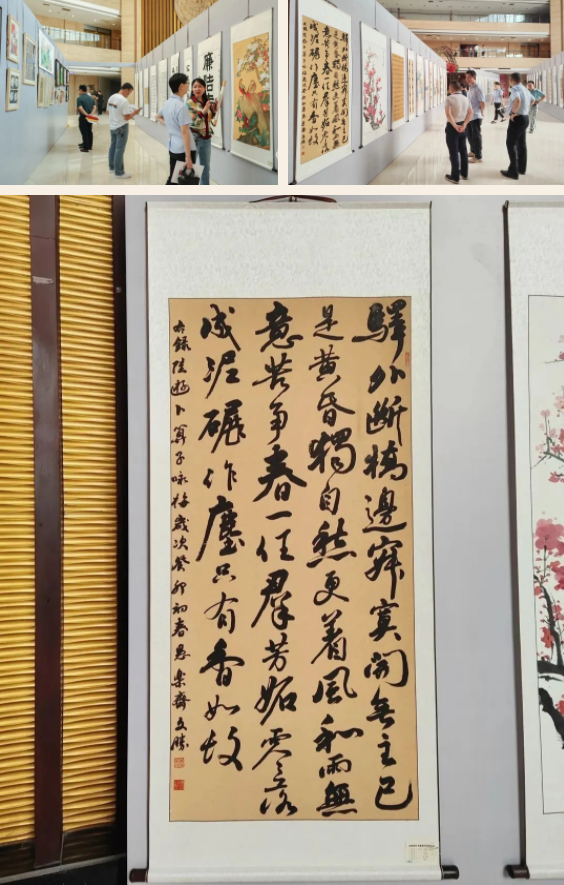 廉洁
驛外斷橋邊寂寞開無主已
是黄昏獨自愁更着風和雨無
意苦争春一任羣芳妬零落
成泥碾作塵只有香如故
右録陸游卜算子咏梅歲次癸卯初春樂齋文勝